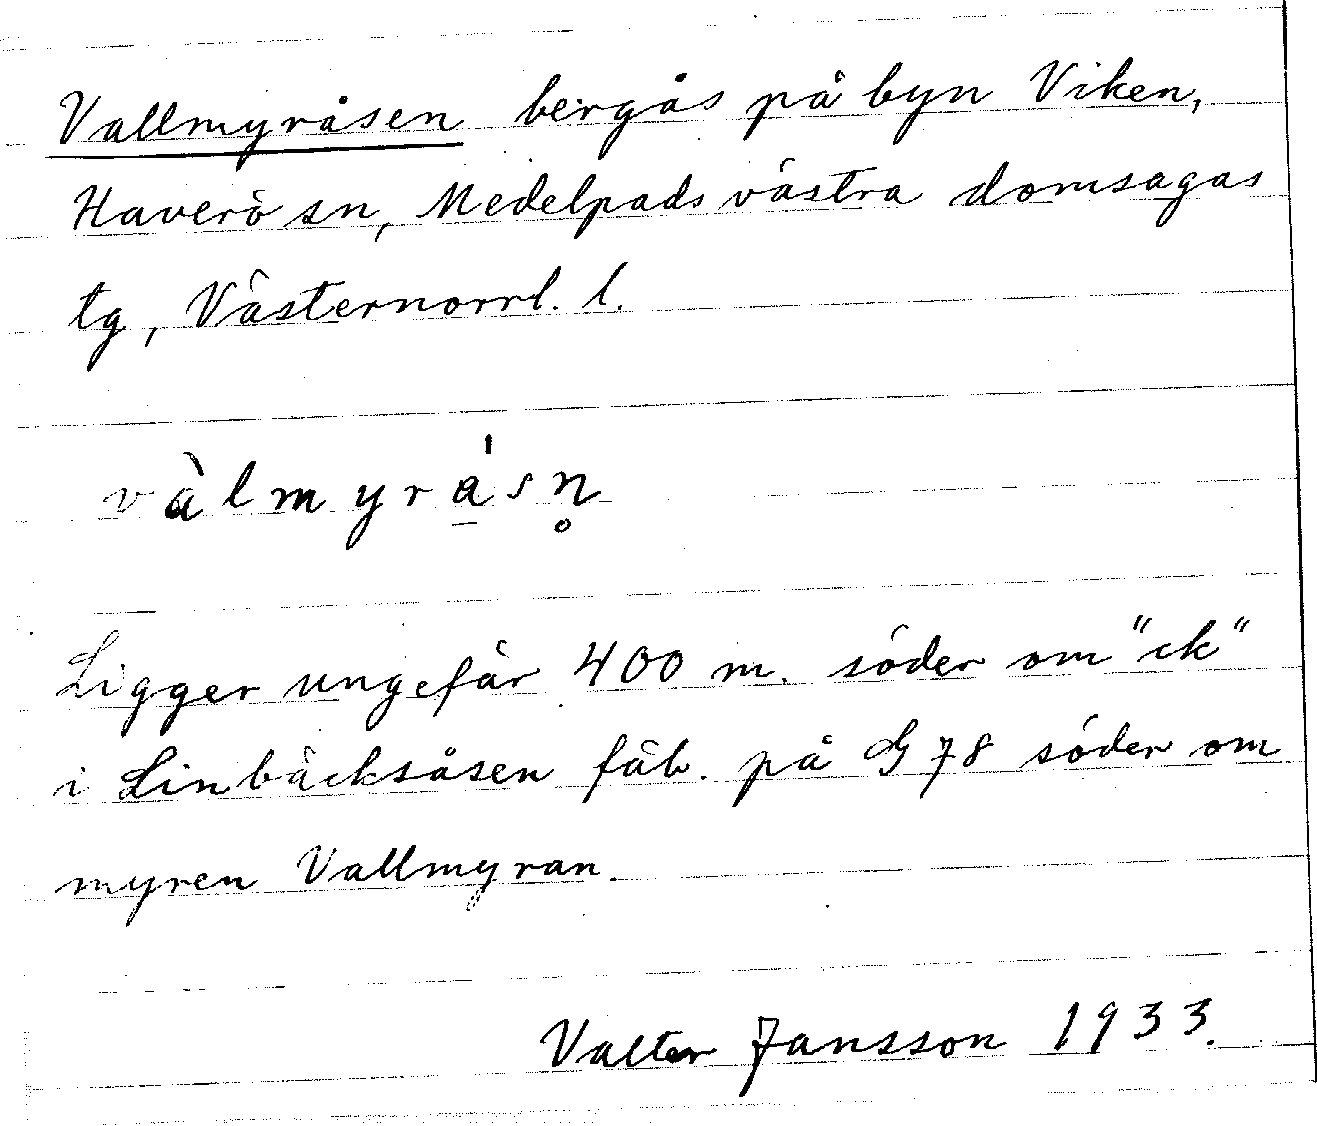 Vallmyråsen bergås på byn Viken,
Haverö sn, Medelpads västra domsagas
tg, Västernorrl. l.
vàlmyrásn̥
Ligger ungefär 400 m. söder om "ck"
i Linbäcksåsen fäb. på G 78 söder om
myren Vallmyran.
Valter Jansson 1933.